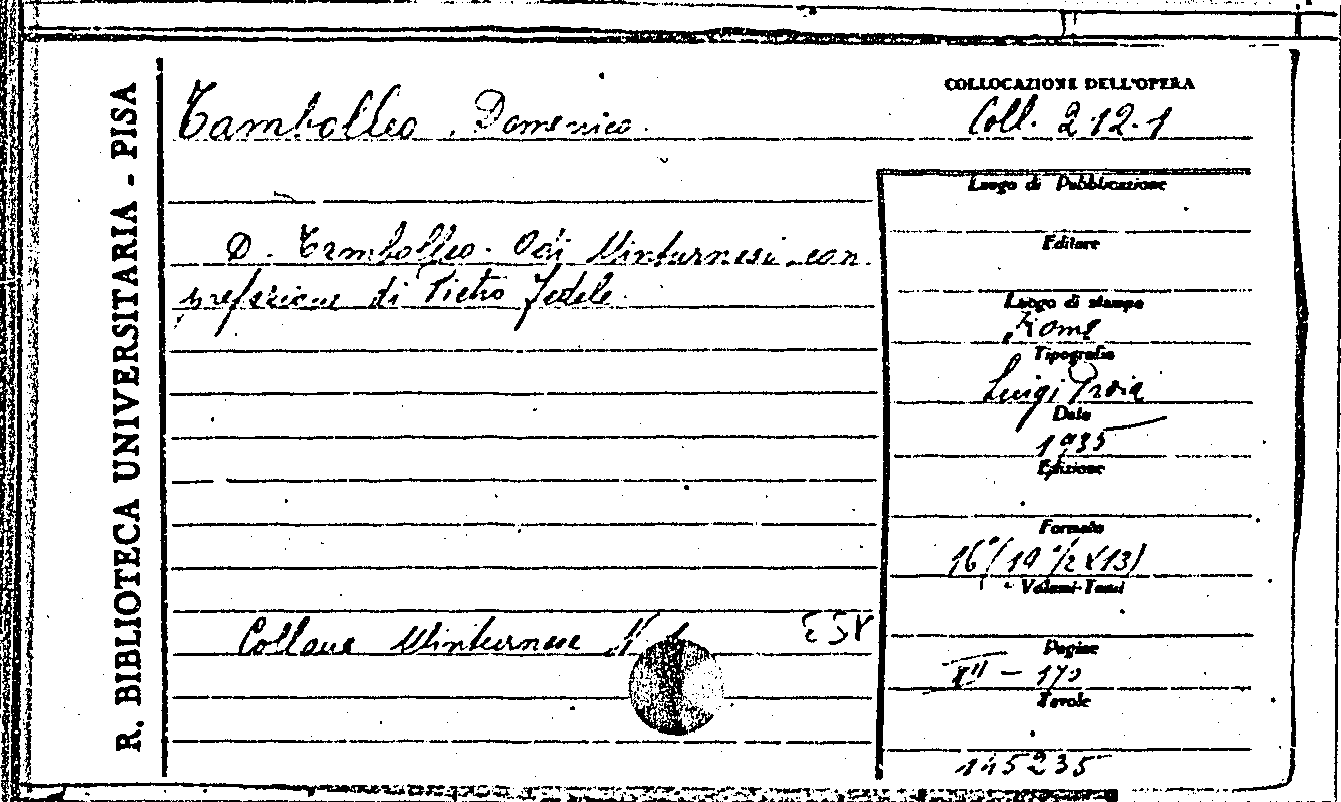 R. BIBLIOTECA UNIVERSITARIA - PISA
Tambolleo, Domenico.
COLLOCAZIONE DELL'OPERA
Coll. 2.12.1
D. Tambolleo. Odi Minturnesi con
prefazione di Pietro Fedele.
Luogo di Pubblicazione
Editore
Luogo di stampa
Roma
Tipografia
Luigi Proia
Data
1935
Edizione
Formato
16° (19 1/2 x 13)
Volumi-Tomi
Collana Minturnese N. 1
Pagine
XII - 170
Tavole
145235